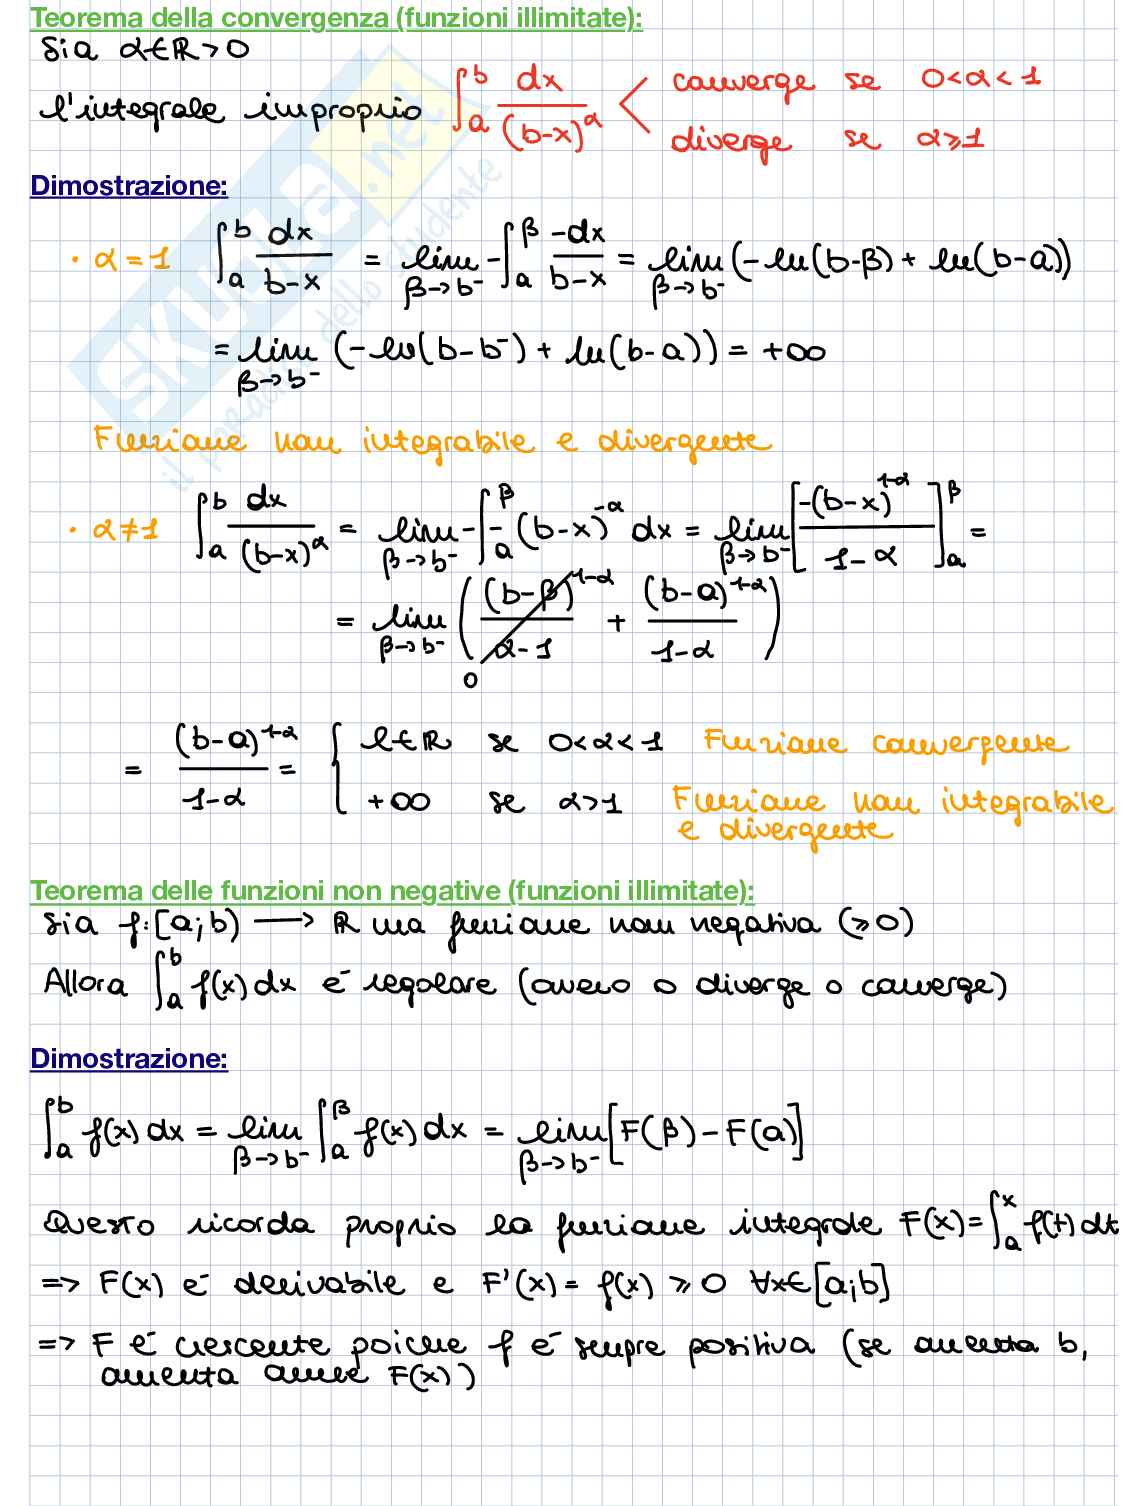 Teorema della convergenza (funzioni illimitate):
Sia α∈ℝ>0
l'integrale improprio ∫_a^b dx/(b-x)^α < converge se 0<α<1
diverge se α≥1
Dimostrazione:
· α=1 ∫_a^b dx/(b-x) = lim_{β→b⁻} -∫_a^β -dx/(b-x) = lim_{β→b⁻} (-ln(b-β) + ln(b-a))
= lim_{β→b⁻} (-ln(b-b⁻) + ln(b-a)) = +∞
Funzione non integrabile e divergente
· α≠1 ∫_a^b dx/(b-x)^α = lim_{β→b⁻} -∫_a^β -(b-x)^{-α} dx = lim_{β→b⁻} [-(b-x)^{1-α}/(1-α)]_a^β =
= lim_{β→b⁻} ((b-β)^{1-α}/(α-1) + (b-a)^{1-α}/(1-α))
0
= (b-a)^{1-α}/(1-α) = { l∈ℝ se 0<α<1 Funzione convergente
+∞ se α>1 Funzione non integrabile
e divergente
Teorema delle funzioni non negative (funzioni illimitate):
Sia f:[a;b) → ℝ una funzione non negativa (≥0)
Allora ∫_a^b f(x) dx é regolare (ovvero o diverge o converge)
Dimostrazione:
∫_a^b f(x) dx = lim_{β→b⁻} ∫_a^β f(x) dx = lim_{β→b⁻} [F(β) - F(a)]
Questo ricorda proprio la funzione integrale F(x) = ∫_a^x f(t) dt
=> F(x) é derivabile e F'(x) = f(x) ≥ 0 ∀x∈[a;b]
=> F é crescente poiche f é sempre positiva (se aumenta b,
aumenta anche F(x))
SKUOLA.net
il paradiso dello studente